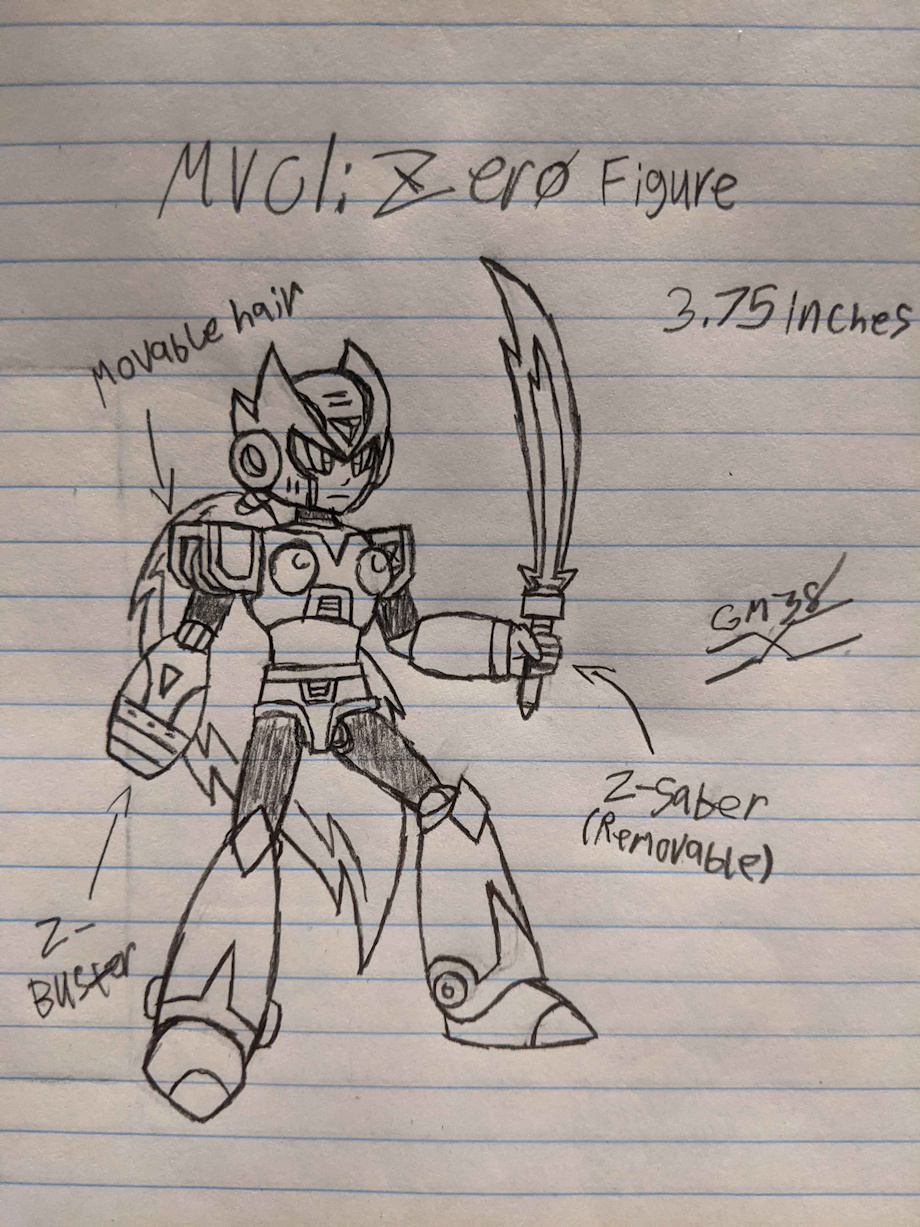 MVCI: Zerø Figure
3.75 Inches
Movable hair
GM38
Z-Saber
(Removable)
Z-
Buster